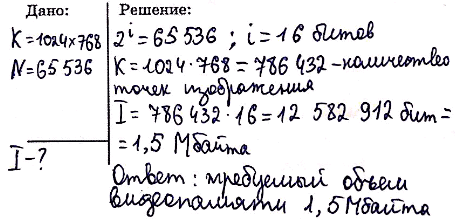 Дано:
K=1024×768
N=65 536
I-?
Решение:
2^i=65 536 ; i=16 битов
K=1024·768=786 432-количество
точек изображения
I=786 432·16=12 582 912 бит=
=1,5 Мбайта
Ответ: требуемый объем
видеопамяти 1,5 Мбайта